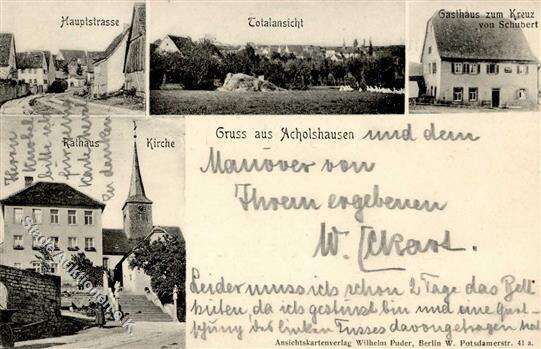 Hauptstrasse
Totalansicht
Gasthaus zum Kreuz
von Schubert
Rathaus
Kirche
Gruss aus Acholshausen und dem
Manöver von
Ihrem ergebenen
W. Eckart.
Herrn
bitte ich
für seine
Karte
zu danken
Leider muss ich schon 2 Tage das Bett
hüten, da ich gestürzt bin und eine Quet-
schung des linken Fusses davongetragen hab
Ansichtskartenverlag Wilhelm Puder, Berlin W. Potsdamerstr. 41 a.